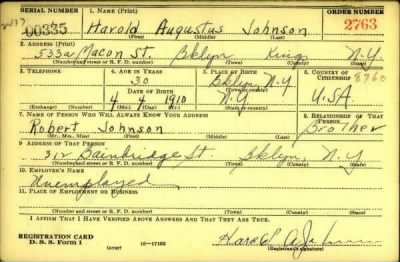 SERIAL NUMBER 1. NAME (Print) ORDER NUMBER
00335 Harold Augustus Johnson 2763
(First) (Middle) (Last)
2. ADDRESS (Print)
533a Macon St. Bklyn King N.Y.
(Number and street or R. F. D. number) (Town) (County) (State)
3. TELEPHONE 4. AGE IN YEARS 5. PLACE OF BIRTH 6. COUNTRY OF CITIZENSHIP
30 Bklyn, N.Y 8760
DATE OF BIRTH (Town or county)
4 1910 N.Y U.S.A
(Exchange) (Number) (Mo.) (Day) (Yr.) (State or country)
7. NAME OF PERSON WHO WILL ALWAYS KNOW YOUR ADDRESS 8. RELATIONSHIP OF THAT PERSON
Robert Johnson Brother
(Mr., Mrs., Miss) (First) (Middle) (Last)
9. ADDRESS OF THAT PERSON
312 Bainbridge St. Bklyn, N.Y
(Number and street or R. F. D. number) (Town) (County) (State)
10. EMPLOYER'S NAME
Unemployed
11. PLACE OF EMPLOYMENT OR BUSINESS
(Number and street or R. F. D. number) (Town) (County) (State)
I AFFIRM THAT I HAVE VERIFIED ABOVE ANSWERS AND THAT THEY ARE TRUE.
REGISTRATION CARD
D. S. S. Form 1 (over) 16—17105 Harold A. Johnson
(Registrant's signature)